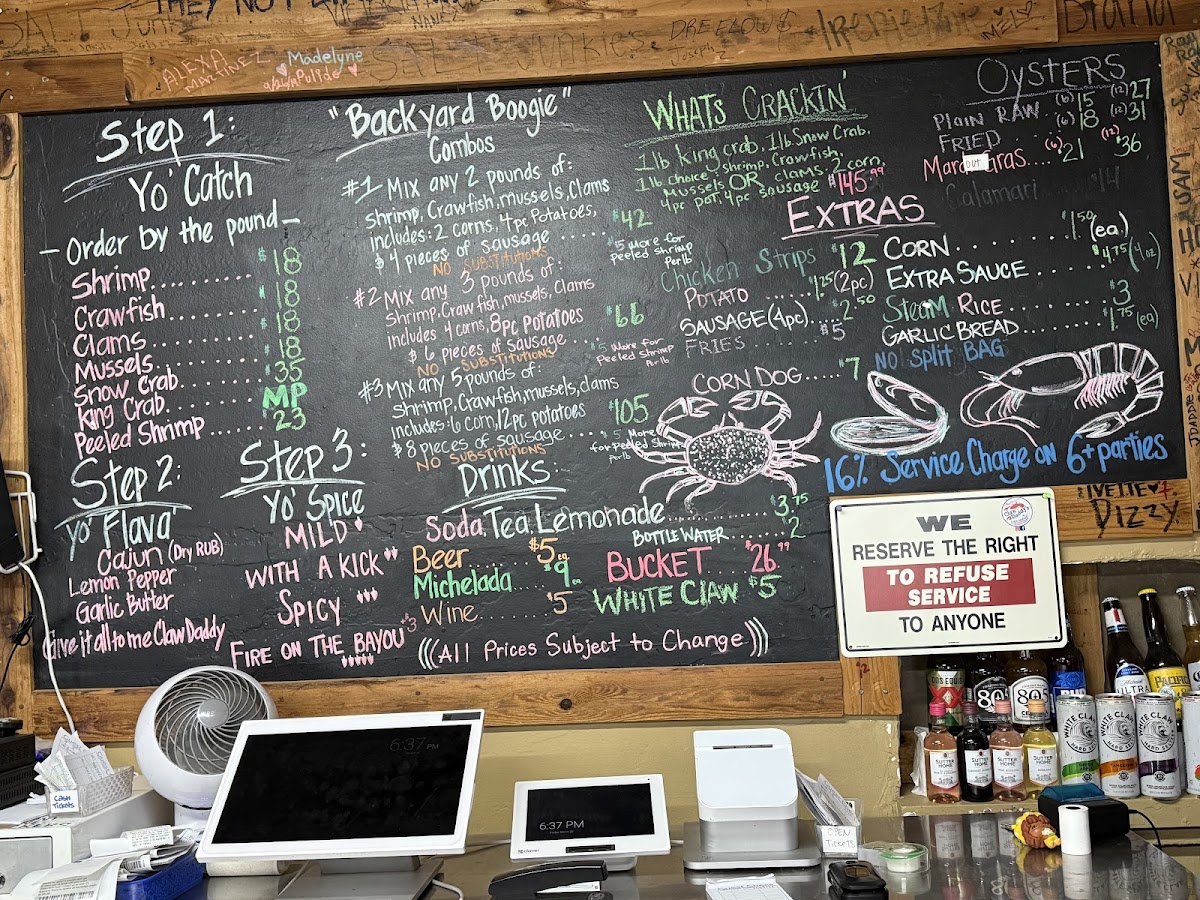 THEY NOT
NANCY
DREE FLOW$
Joseph
ALEXA
MARTINEZ
Madelyne
SALT JUNKIES
Step 1:
Yo' Catch
- Order by the pound -
Shrimp....... $18
Crawfish....... $18
Clams........ $18
Mussels....... $18
Snow Crab....... $35
King Crab........ MP
Peeled Shrimp ...... $23
Step 2:
Yo' Flava
Cajun (Dry RUB)
Lemon Pepper
Garlic Butter
Give it all to me Claw Daddy
Step 3:
Yo' Spice
MILD
WITH A KICK
SPICY
FIRE ON THE BAYOU
"Backyard Boogie"
Combos
#1 Mix any 2 pounds of:
shrimp, Crawfish, mussels, Clams
includes: 2 corns, 4pc Potatoes,
$ 4 pieces of sausage ...... $42
NO SUBSTITUTIONS
$5 More for
Peeled Shrimp
Per lb
#2 Mix any 3 pounds of:
Shrimp, Crawfish, mussels, Clams
includes 4 corns, 8pc potatoes
$ 6 pieces of sausage.... $66
NO SUBSTITUTIONS
$5 More for
Peeled Shrimp
Per lb
#3 Mix any 5 pounds of:
shrimp, Crawfish, mussels, clams
includes: 6 corn, 12pc potatoes
$ 8 pieces of sausage .... $105
NO SUBSTITUTIONS
$5 More
for peeled Shrimp
Per lb
Drinks
Soda, Tea, Lemonade........ $3.75
BOTTLE WATER....... $2
Beer ...... $5 ea
Michelada ...... $9
Wine........ $5
BUCKET $26.99
WHITE CLAW $5
((All Prices Subject to Change))
WHATS CRACKIN'
1lb king crab, 1lb Snow Crab,
1lb choice, shrimp, Crawfish,
Mussels OR clams. 2 corn,
4pc pot, 4pc sausage $145.99
OYSTERS
PLAIN RAW (6) 15 (12) 27
FRIED (6) 18 (12) 31
Mardi Gras.... (6) 21 (12) 36
OUT
Calamari $14
EXTRAS
Chicken Strips $12
POTATO $1.25 (2pc)
SAUSAGE (4pc)... $2.50
FRIES ........ $5
CORN DOG..... $7
CORN......... $1.50 (ea.)
EXTRA SAUCE ........ $4.75 (4oz)
STEAM RICE ......... $3
GARLIC BREAD......... $1.75 (ea)
NO SPLIT BAG
16% Service Charge on 6+ parties
IVETTE
Dizzy
WE
RESERVE THE RIGHT
TO REFUSE
SERVICE
TO ANYONE
6:37 PM
6:37 PM
CASH
TICKETS
OPEN
TICKETS
DOS EQUIS
XX
805
805
ULTRA
PACIFICO
SUTTER
HOME
SUTTER
HOME
SUTTER
HOME
WHITE
CLAW
HARD SELTZER
WHITE
CLAW
WHITE
CLAW